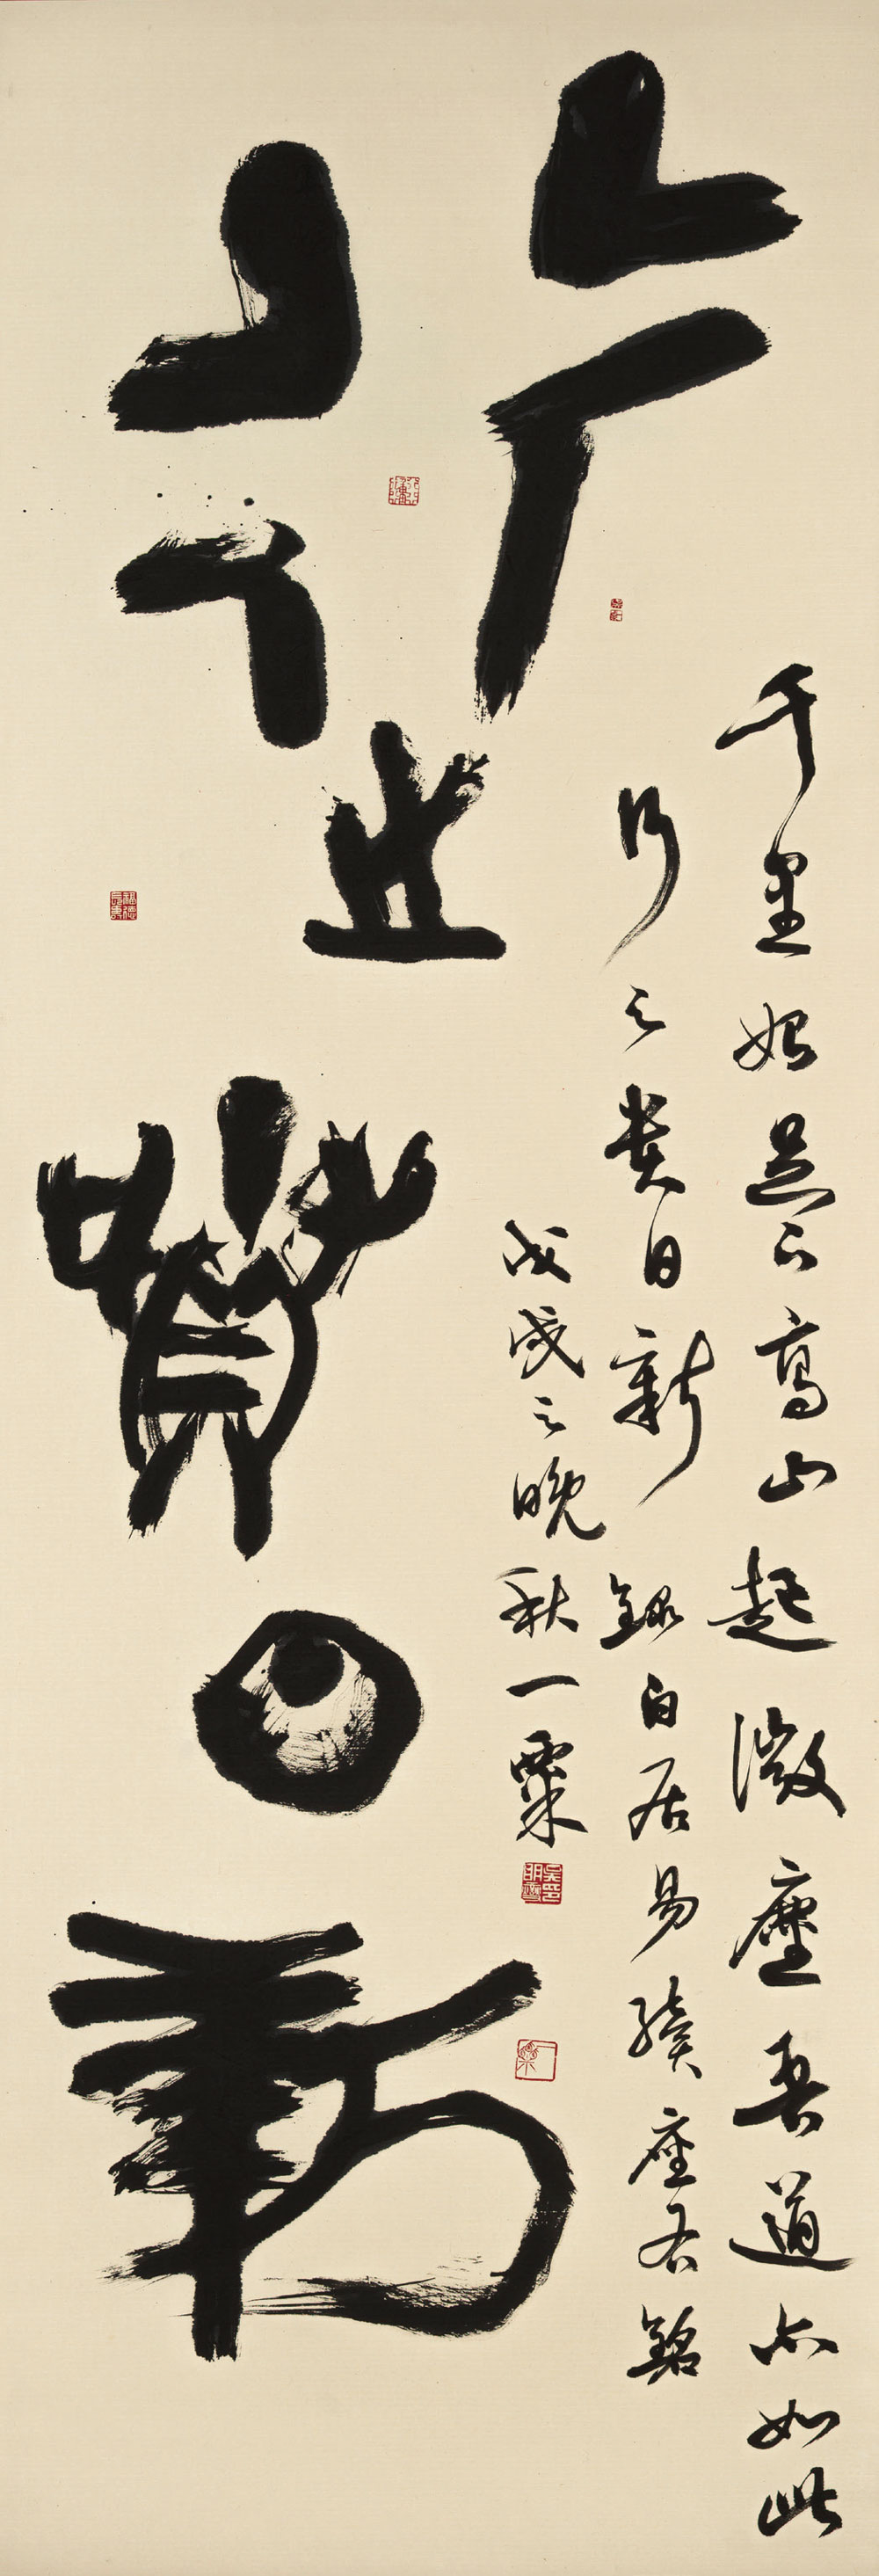 行之貴日新
千里始足下高山起微塵吾道亦如此
行之貴日新 錄白居易續座右銘
戊戌之晚秋一粟
一粟